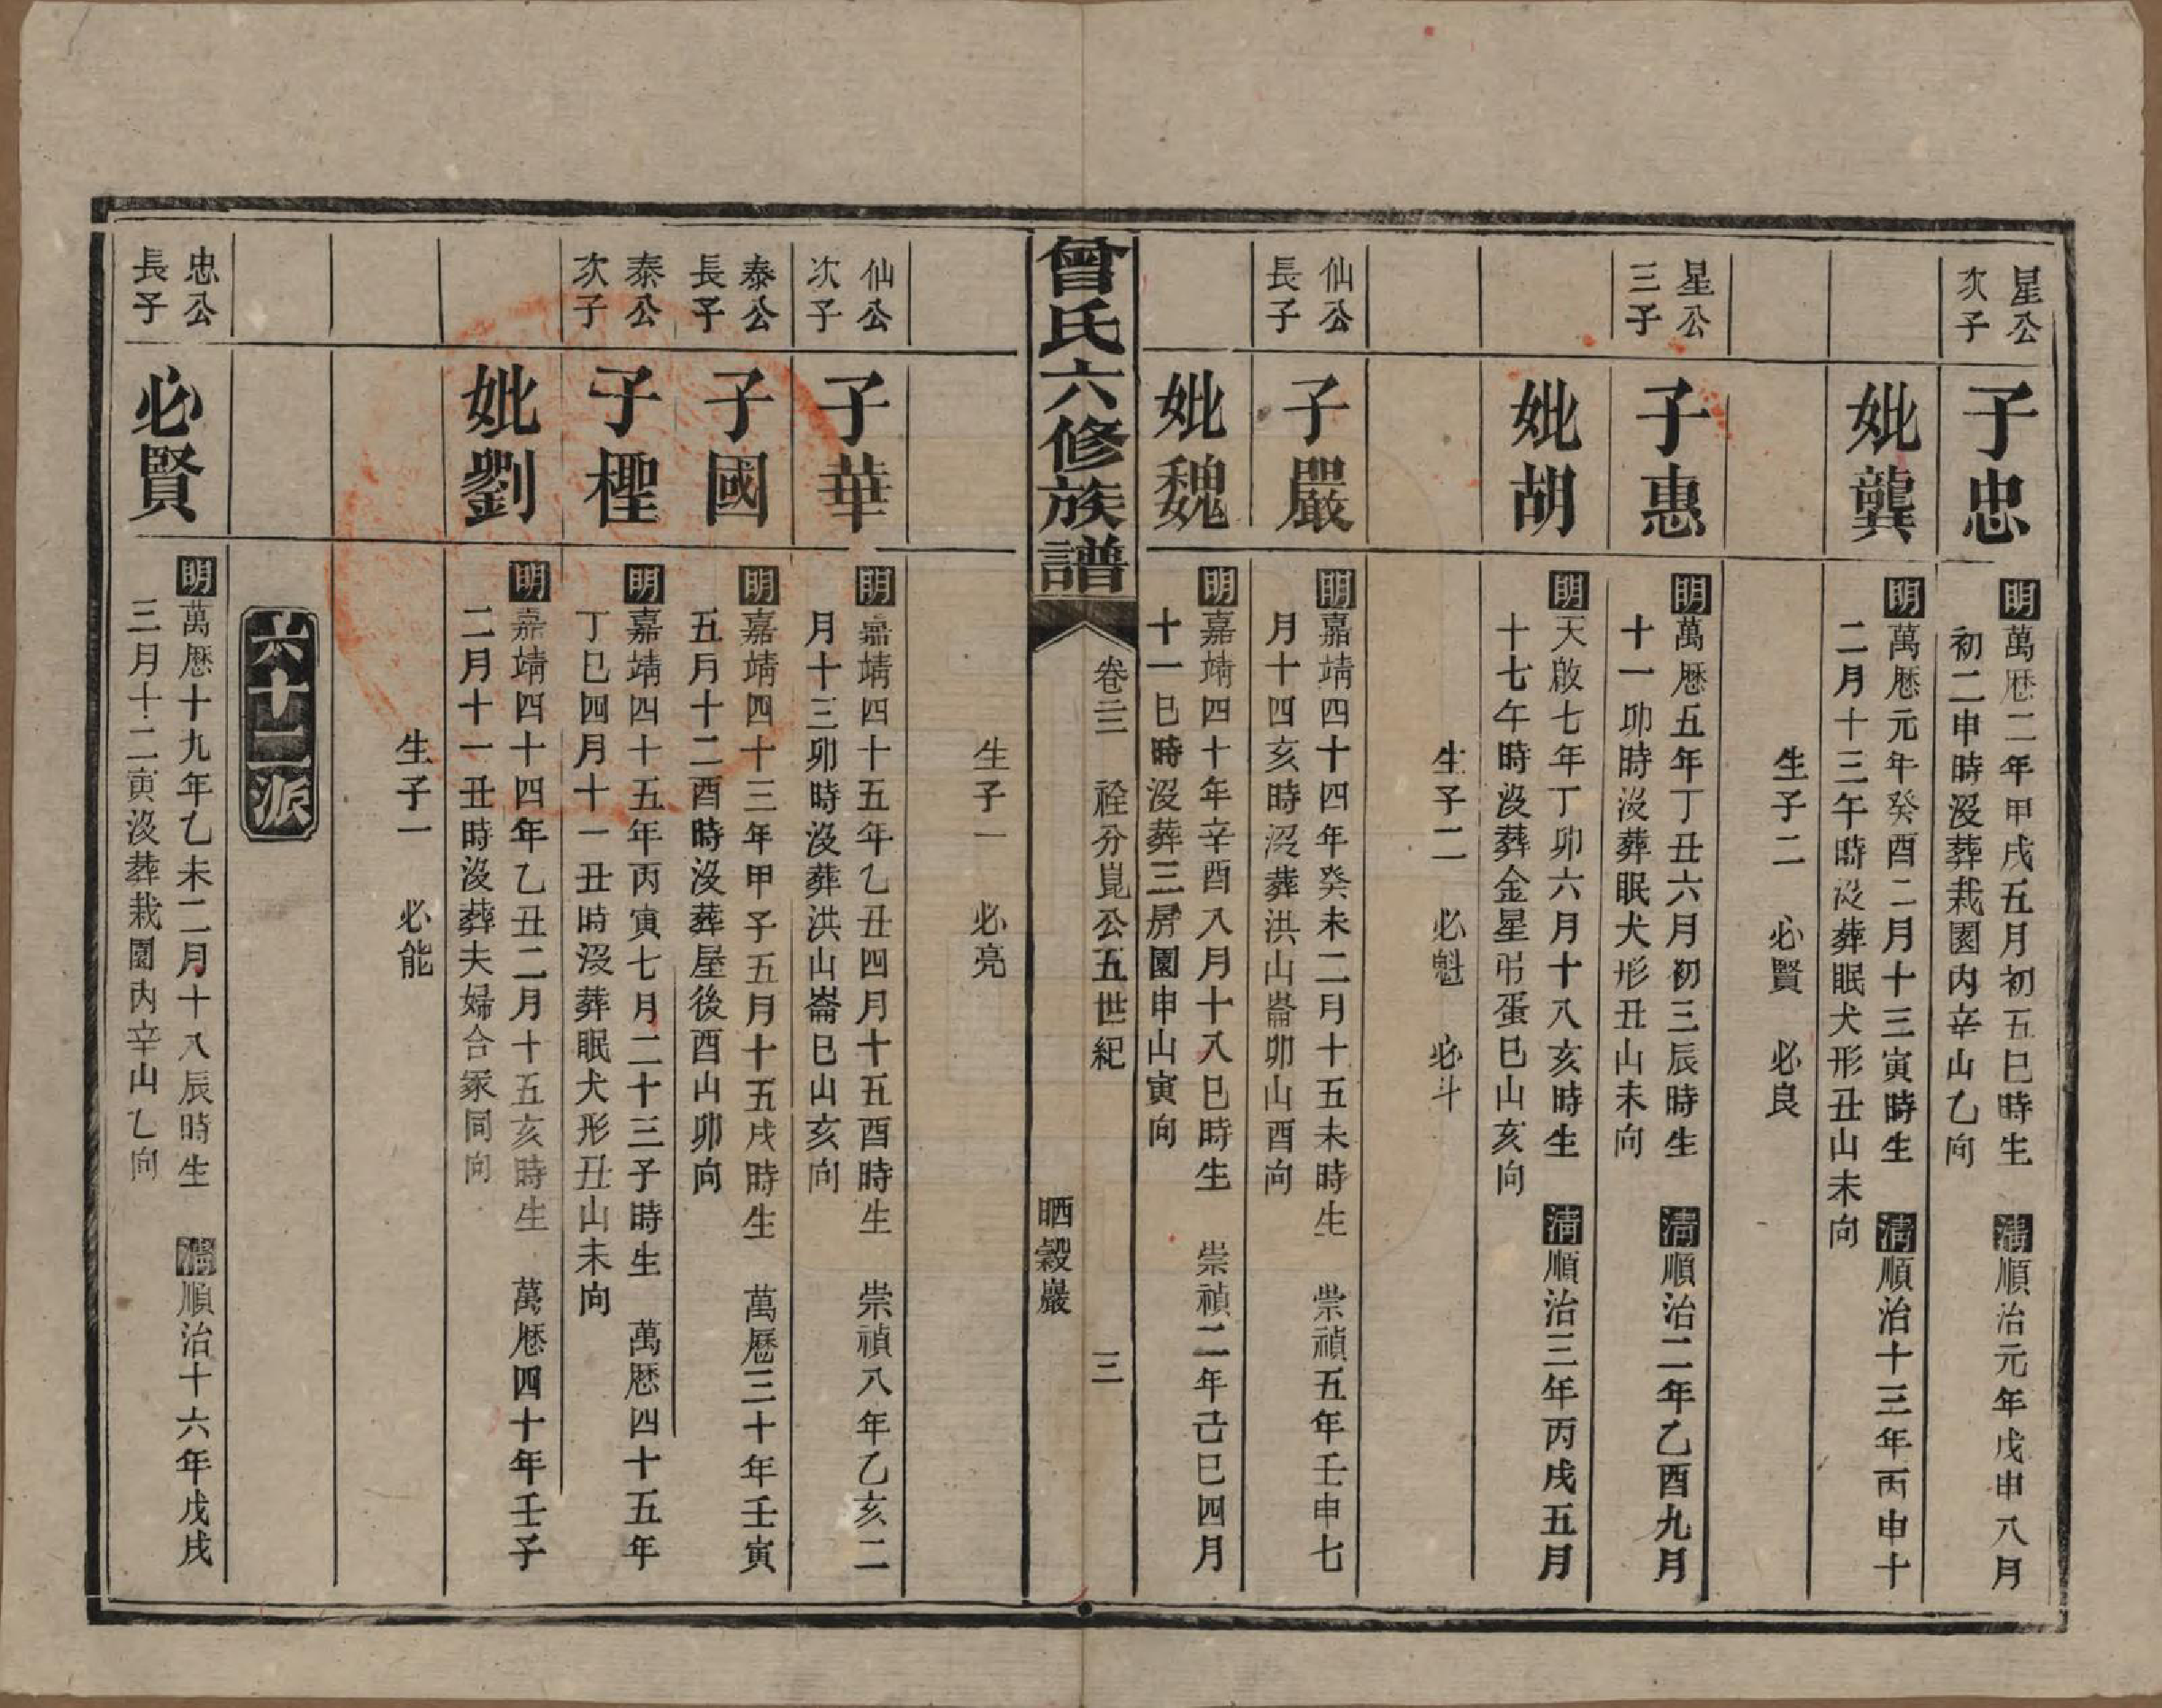 星公
次子
子忠
明萬歷二年甲戌五月初五巳時生 清順治元年戊申八月
初二申時沒葬栽園內辛山乙向
妣龔
明萬歷元年癸酉二月十三寅時生 清順治十三年丙申十
二月十三午時沒葬眠犬形丑山未向
生子二 必賢 必良
星公
三子
子惠
明萬歷五年丁丑六月初三辰時生 清順治二年乙酉九月
十一卯時沒葬眠犬形丑山未向
妣胡
明天啟七年丁卯六月十八亥時生 清順治三年丙戌五月
十七午時沒葬金星弔蛋巳山亥向
生子二 必魁 必斗
仙公
長子
子嚴
明嘉靖四十四年癸未二月十五未時生 崇禎五年壬申七
月十四亥時沒葬洪山崙卯山酉向
妣魏
明嘉靖四十年辛酉八月十八巳時生 崇禎二年己巳四月
十一巳時沒葬三房園申山寅向
曾氏六修族譜
卷三 祿分崑公五世紀 三
晒穀巖
生子一 必亮
仙公
次子
子華
明嘉靖四十五年乙丑四月十五酉時生 崇禎八年乙亥二
月十三卯時沒葬洪山崙巳山亥向
泰公
長子
子國
明嘉靖四十三年甲子五月十五戌時生 萬歷三十年壬寅
五月十二酉時沒葬屋後酉山卯向
泰公
次子
子檉
明嘉靖四十五年丙寅七月二十三子時生 萬歷四十五年
丁巳四月十一丑時沒葬眠犬形丑山未向
妣劉
明嘉靖四十四年乙丑二月十五亥時生 萬歷四十年壬子
二月十一丑時沒葬夫婦合冢同向
生子一 必能
六十二派
忠公
長子
必賢
明萬歷十九年乙未二月十八辰時生 清順治十六年戊戌
三月十二寅沒葬栽園內辛山乙向